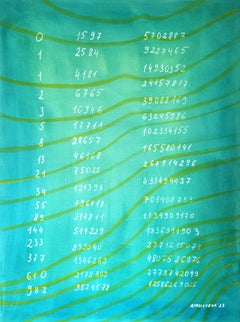 0
1
1
2
3
5
8
13
21
34
55
89
144
233
377
610
987
1597
2584
4181
6765
10946
17711
28657
46368
75025
121393
196418
317811
514229
832040
1346269
2178309
3524578
5702887
9227465
14930352
24157817
39088169
63245986
102334155
165580141
267914296
433494437
701408733
1134903170
1836311903
2971215073
4807526976
7778742049
12586269025